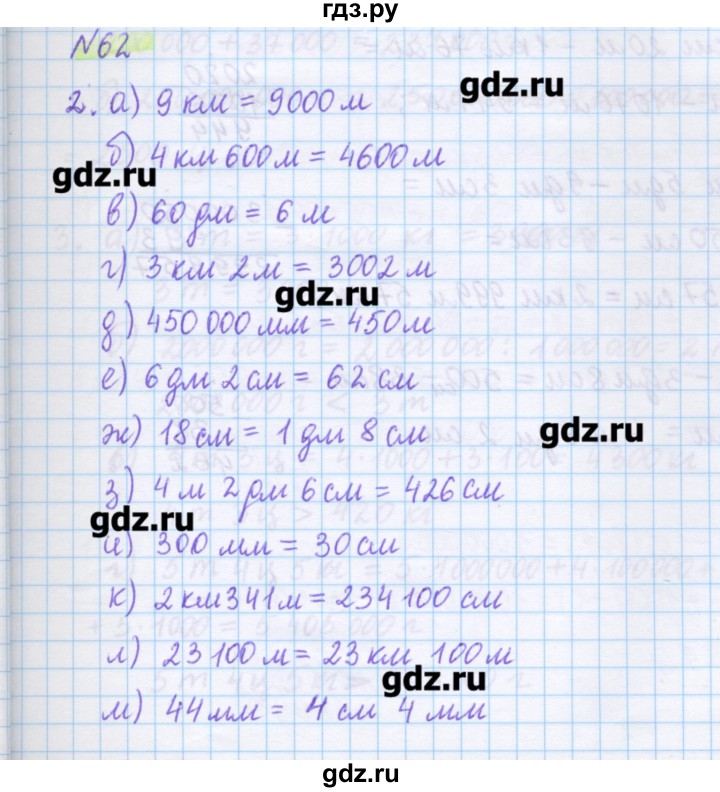 гдз.ру
№62
2. а) 9 км = 9000 м
gdz.ru
б) 4 км 600 м = 4600 м
gdz.ru
в) 60 дм = 6 м
г) 3 км 2 м = 3002 м
gdz.ru
д) 450 000 мм = 450 м
е) 6 дм 2 см = 62 см
ж) 18 см = 1 дм 8 см
gdz.ru
з) 4 м 2 дм 6 см = 426 см
gdz.ru
и) 300 мм = 30 см
к) 2 км 341 м = 234 100 см
л) 23 100 м = 23 км 100 м
gdz.ru
м) 44 мм = 4 см 4 мм
gdz.ru